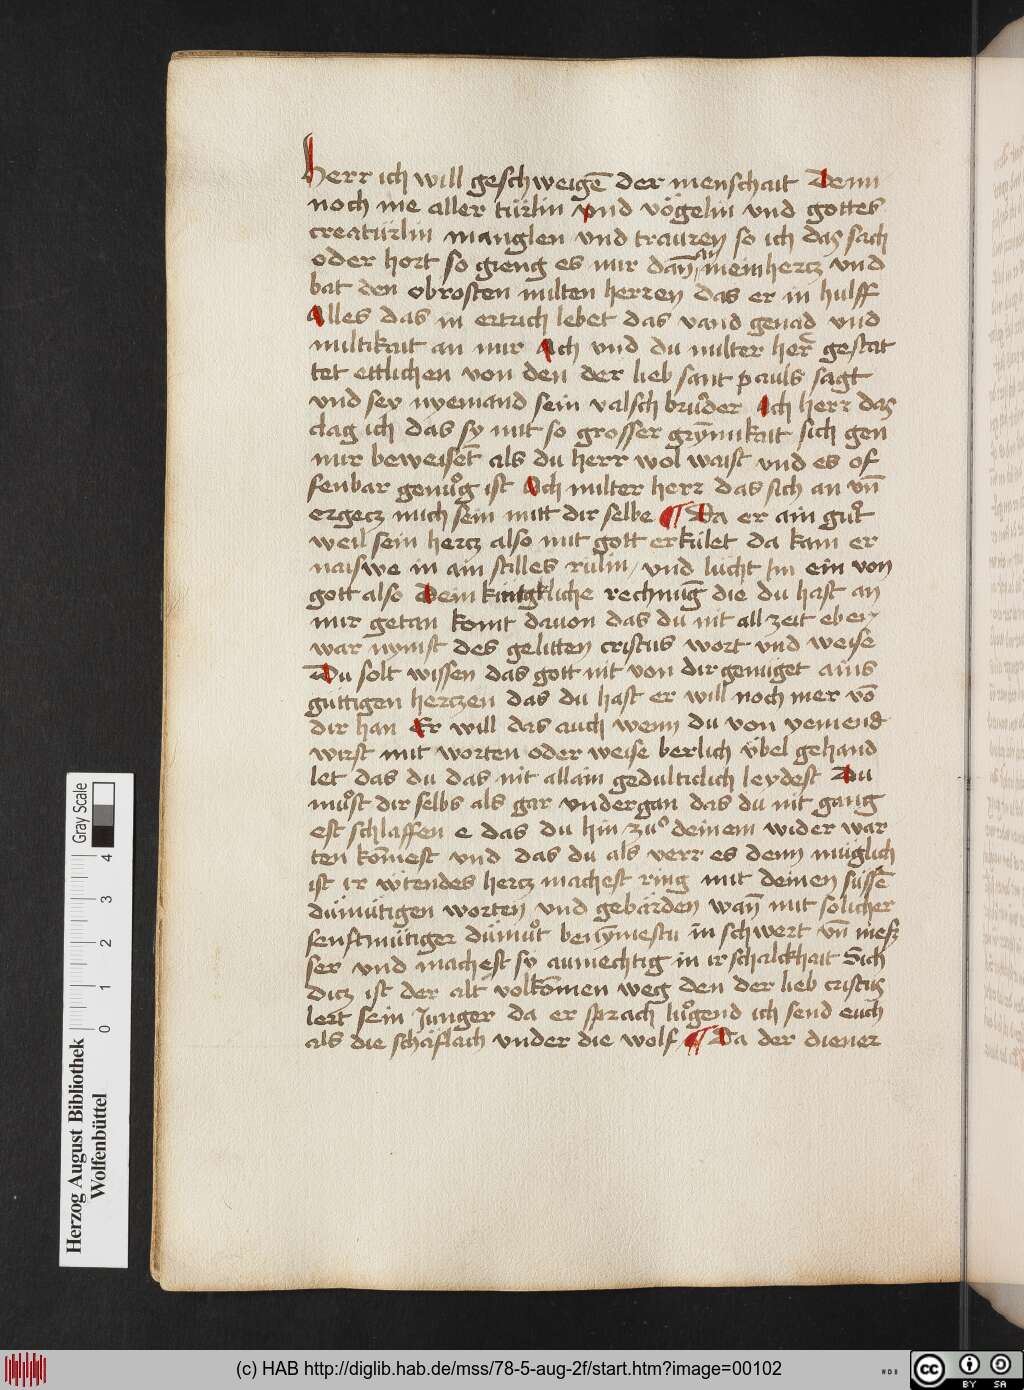 Herr ich will geschweigē der menschait Denn
noch nie aller türlin vnd vögelin vnd gottes
creatürlin manglen vnd trauren so ich das sach
oder hort so gieng es mir dañ an mein hercz vnd
bat den obrosten milten herren das er in hulff
Alles das in ertrich lebet das vand genad vnd
miltikait an mir Ach vnd du milter her gestat
tet ettlichen von den der lieb sant pauls sagt
vnd sey nyemand sein valsch brůder Ach herr das
clag ich das sy mit so grosser grȳmikait sich gen
mir beweiset als du herr wol waist vnd es of
fenbar genůg ist Ach milter herr das sich an vñ
ergecz mich sein mitt dir selbe ¶ Da er ain gůt
weil sein hercz also mit gott erkület da kam er
naiswe in ain stilles rülin / vnd lücht Im ein von
gott also Dein rechnūg die du hast an
mir getan komt dauon das du nit all zeit eben
war nymst des gelitten cristus wort vnd weise
Du solt wissen das gott nit von dir genüget ains
güttigen herczen das du hast er will noch mer vō
dir han Er will das auch wenn du von yemend
wirst mit worten oder weise berlich vbel gehand
let das du das nit allain gedulticlich leydest Du
můst dir selbs als gar vndergan das du nit gang
est schlaffen e das du hin zů deinem wider war
ten kōmest vnd das du als verr es denn müglich
ist ir wütendes hercz machest ring mit deinen süssē
dümütigen worten vnd gebärden wañ mit solicher
senftmütiger dümůt benȳmestu in schwert vñ mesz
ser vnd machest sy aumechtig in ir schalckhait Sich
dicz ist der alt volkōmen weg den der lieb cristus
lert sein Junger da er sprach lůgend ich send euch
als die schäflach vnder die wolf ¶ Da der diener
Gray Scale
4
3
2
1
0
Herzog August Bibliothek
Wolfenbüttel
(c) HAB http://diglib.hab.de/mss/78-5-aug-2f/start.htm?image=00102
WDB
cc
BY SA